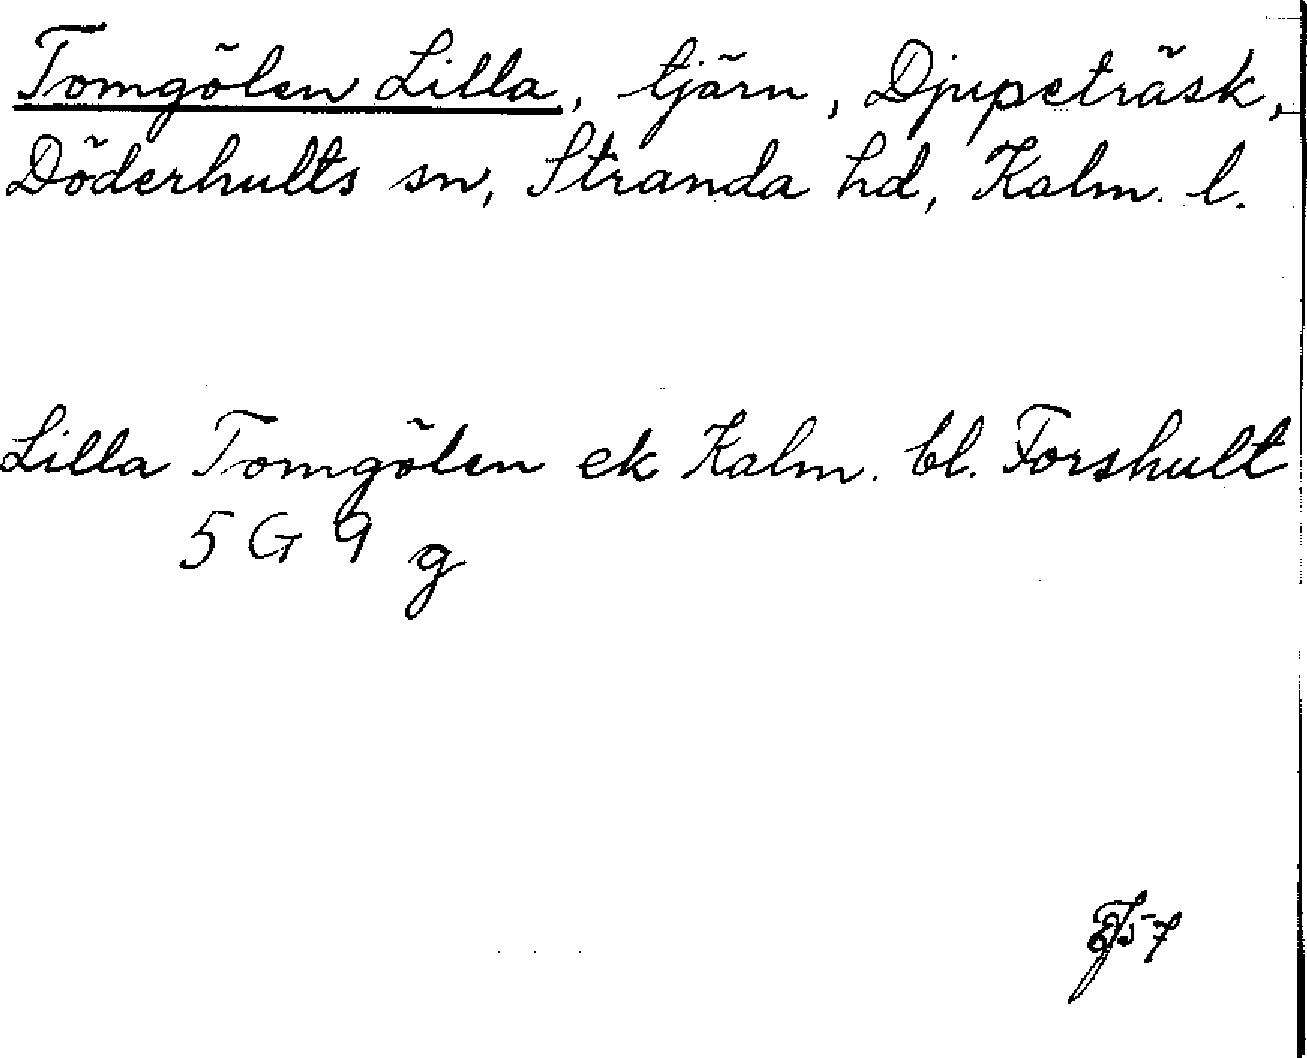 Tomgölen Lilla, tjärn, Djupeträsk,
Döderhults sn, Stranda hd, Kalm. l.
Lilla Tomgölen ek Kalm. bl. Forshult
5 G 9 g